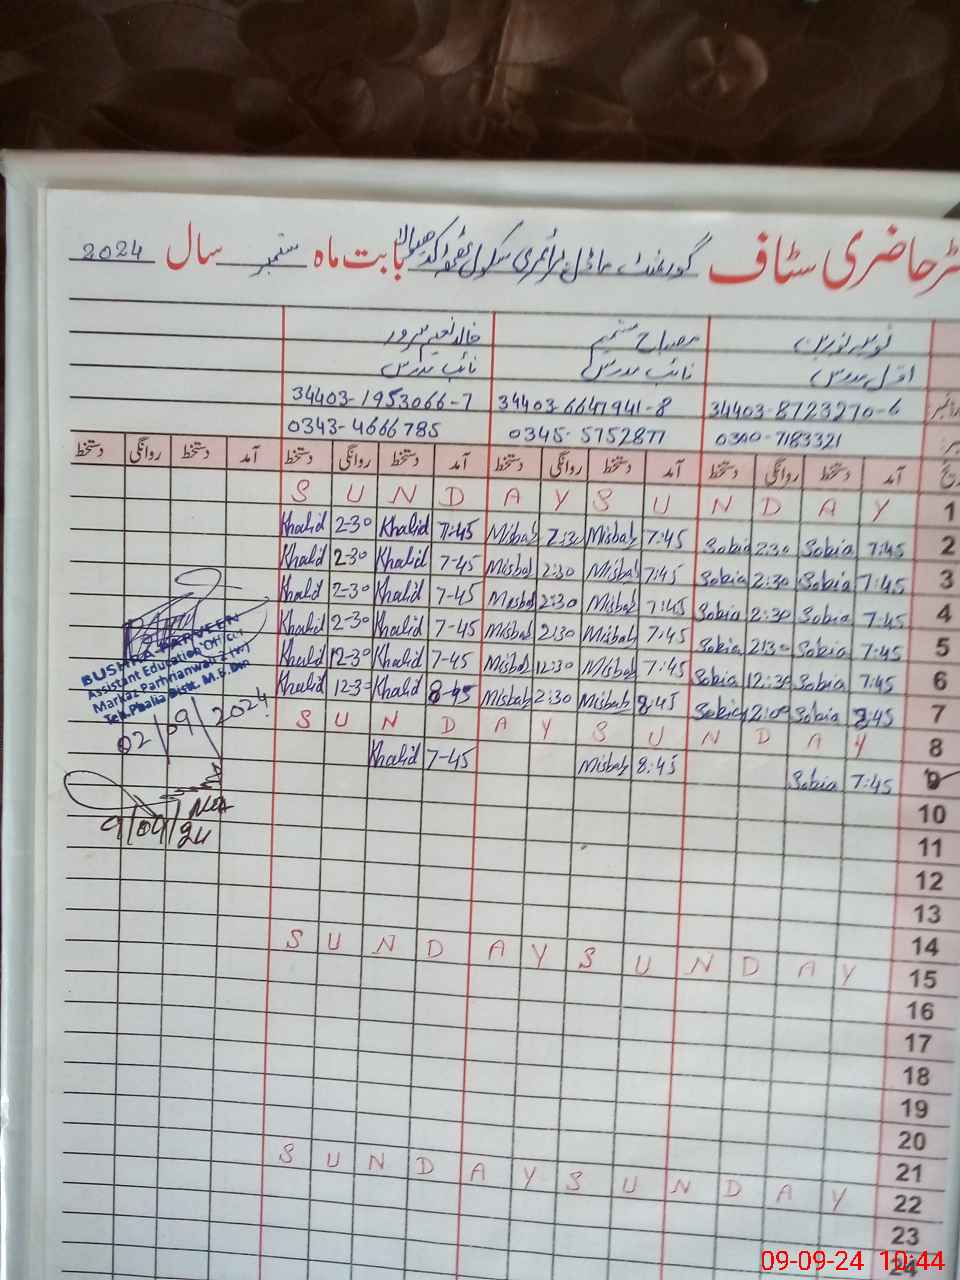 رجسٹر حاضری سٹاف گورنمنٹ ماڈل پرائمری سکول بابت ماہ ستمبر سال 2024
مصباح شمیم خالد نعیم سرور
اول مدرس نائب مدرس نائب مدرس
34403-8723270-6 34403-6647941-8 34403-1953066-7
0300-7183321 0345-5752877 0343-4666785
آمد دستخط روانگی دستخط آمد دستخط روانگی دستخط آمد دستخط روانگی دستخط آمد دستخط روانگی دستخط
S U N D A Y S U N D A Y 1
Khalid 2-30 Khalid 7-45 Misbah 2:30 Misbah 7:45 Sobia 2:30 Sobia 7:45 2
Khalid 2-30 Khalid 7-45 Misbah 2:30 Misbah 7:45 Sobia 2:30 Sobia 7:45 3
Khalid 2-30 Khalid 7-45 Misbah 2:30 Misbah 7:45 Sobia 2:30 Sobia 7:45 4
Khalid 2-30 Khalid 7-45 Misbah 2:30 Misbah 7:45 Sobia 2:30 Sobia 7:45 5
Khalid 12-30 Khalid 7-45 Misbah 12:30 Misbah 7:45 Sobia 12:30 Sobia 7:45 6
Khalid 12-3 Khalid 8-45 Misbah 2:30 Misbah 8:45 Sobia Sobia 8:45 7
S U N D A Y S U N D A Y 8
Khalid 7-45 Misbah 8:45 Sobia 7:45 9
10
11
12
13
14
S U N D A Y S U N D A Y 15
16
17
18
19
20
21
S U N D A Y S U N D A Y 22
23
24
BUSHRA PARVEEN
Assistant Education Officer
Markaz Parhianwali
Teh. Phalia Distt. M.B.Din
02/09/2024
9/09/24
09-09-24 10:44